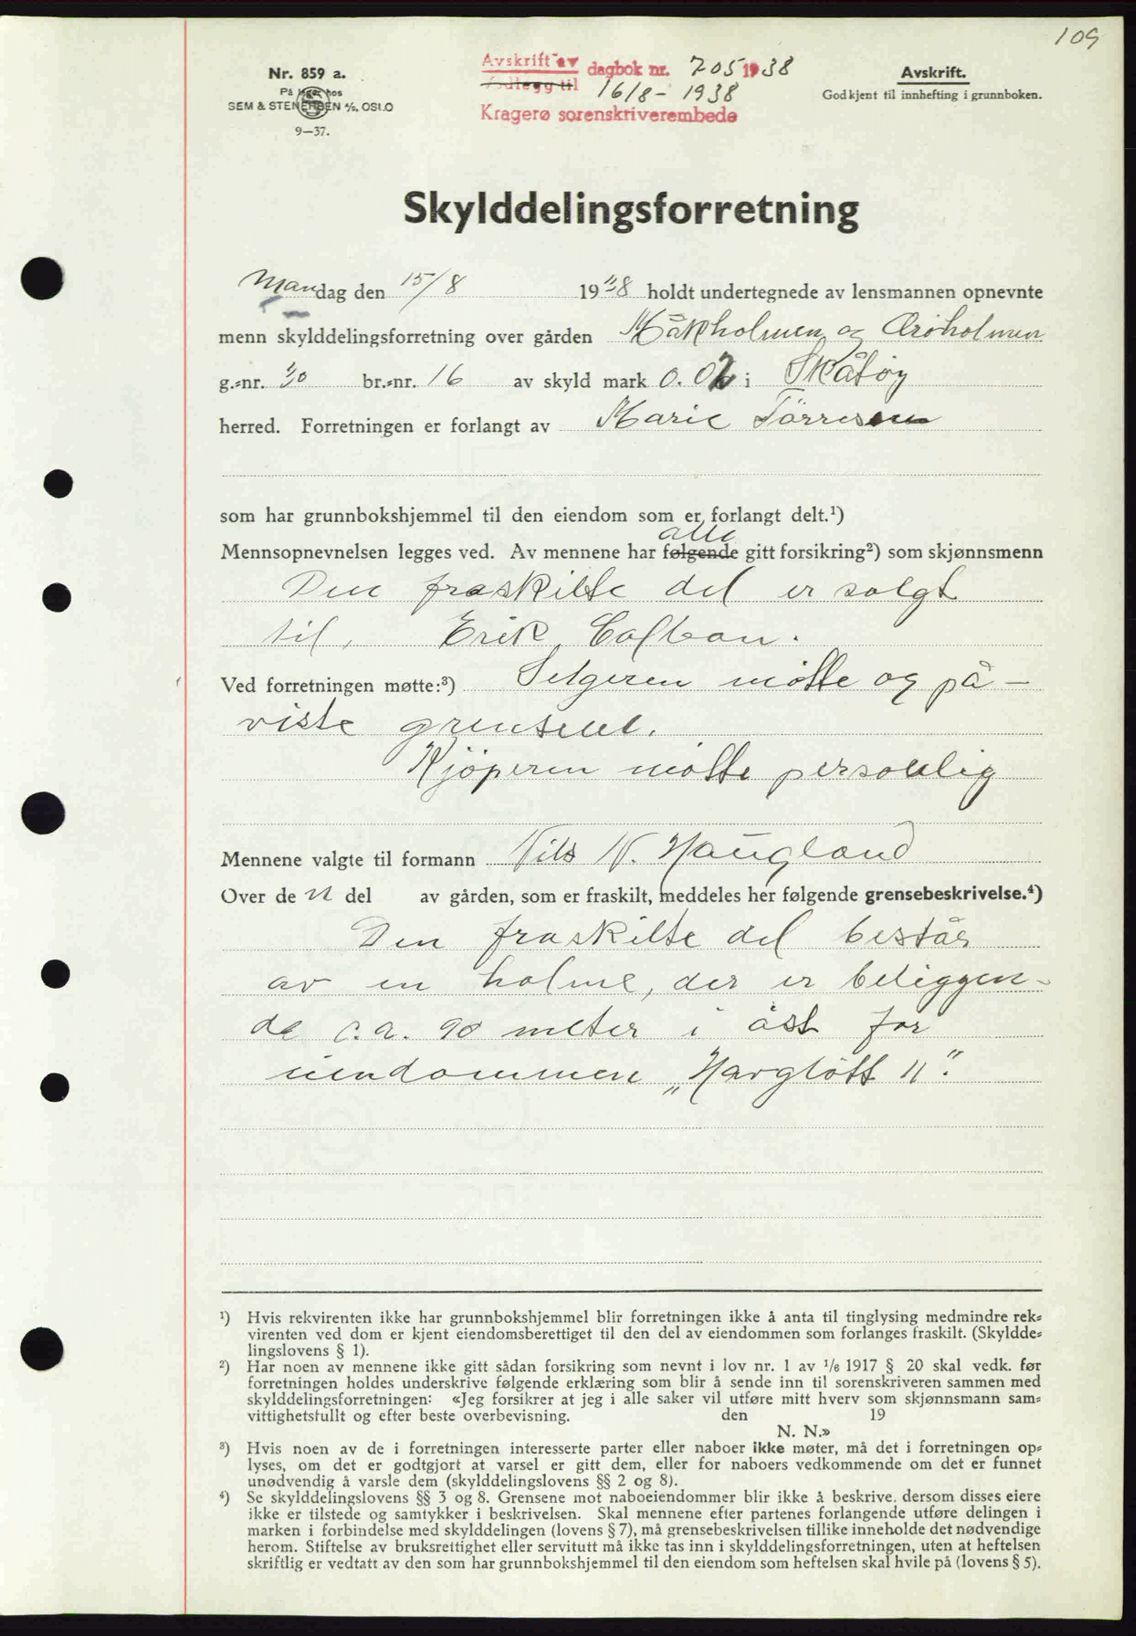 109
Nr. 859 a.
På lager hos
SEM & STENERSEN A/S. OSLO
9—37.
Avskrift av dagbok nr. 705 1938
Vedlegg til 16/8 - 1938
Kragerø sorenskriverembede
Avskrift.
Godkjent til innhefting i grunnboken.
Skylddelingsforretning
Mandag den 15/8 1938 holdt undertegnede av lensmannen opnevnte
menn skylddelingsforretning over gården Måkholmen og Ærøholmen
g.-nr. 30 br.-nr. 16 av skyld mark 0.02 i Skåtøy
herred. Forretningen er forlangt av Marie Törresen
som har grunnbokshjemmel til den eiendom som er forlangt delt.¹)
alle
Mennsopnevnelsen legges ved. Av mennene har følgende gitt forsikring²) som skjønnsmenn
Den fraskilte del er solgt
til, Erik Colban.
Ved forretningen møtte:³) Selgeren møtte og på-
viste grensene.
Kjöperen møtte personlig
Mennene valgte til formann Nils N. Haugland
Over de n del av gården, som er fraskilt, meddeles her følgende grensebeskrivelse.⁴)
Den fraskilte del består
av en holme, der er beliggen-
de c.a. 90 meter i öst for
eiendommen „Havgløtt II".
¹) Hvis rekvirenten ikke har grunnbokshjemmel blir forretningen ikke å anta til tinglysing medmindre rek-
virenten ved dom er kjent eiendomsberettiget til den del av eiendommen som forlanges fraskilt. (Skyldde-
lingslovens § 1).
²) Har noen av mennene ikke gitt sådan forsikring som nevnt i lov nr. 1 av 1/6 1917 § 20 skal vedk. før
forretningen holdes underskrive følgende erklæring som blir å sende inn til sorenskriveren sammen med
skylddelingsforretningen: «Jeg forsikrer at jeg i alle saker vil utføre mitt hverv som skjønnsmann sam-
vittighetsfullt og efter beste overbevisning. den 19
N. N.»
³) Hvis noen av de i forretningen interesserte parter eller naboer ikke møter, må det i forretningen op-
lyses, om det er godtgjort at varsel er gitt dem, eller for naboers vedkommende om det er funnet
unødvendig å varsle dem (skylddelingslovens §§ 2 og 8).
⁴) Se skylddelingslovens §§ 3 og 8. Grensene mot naboeiendommer blir ikke å beskrive, dersom disses eiere
ikke er tilstede og samtykker i beskrivelsen. Skal mennene efter partenes forlangende utføre delingen i
marken i forbindelse med skylddelingen (lovens § 7), må grensebeskrivelsen tillike inneholde det nødvendige
herom. Stiftelse av bruksrettighet eller servitutt må ikke tas inn i skylddelingsforretningen, uten at heftelsen
skriftlig er vedtatt av den som har grunnbokshjemmel til den eiendom som heftelsen skal hvile på (lovens § 5).